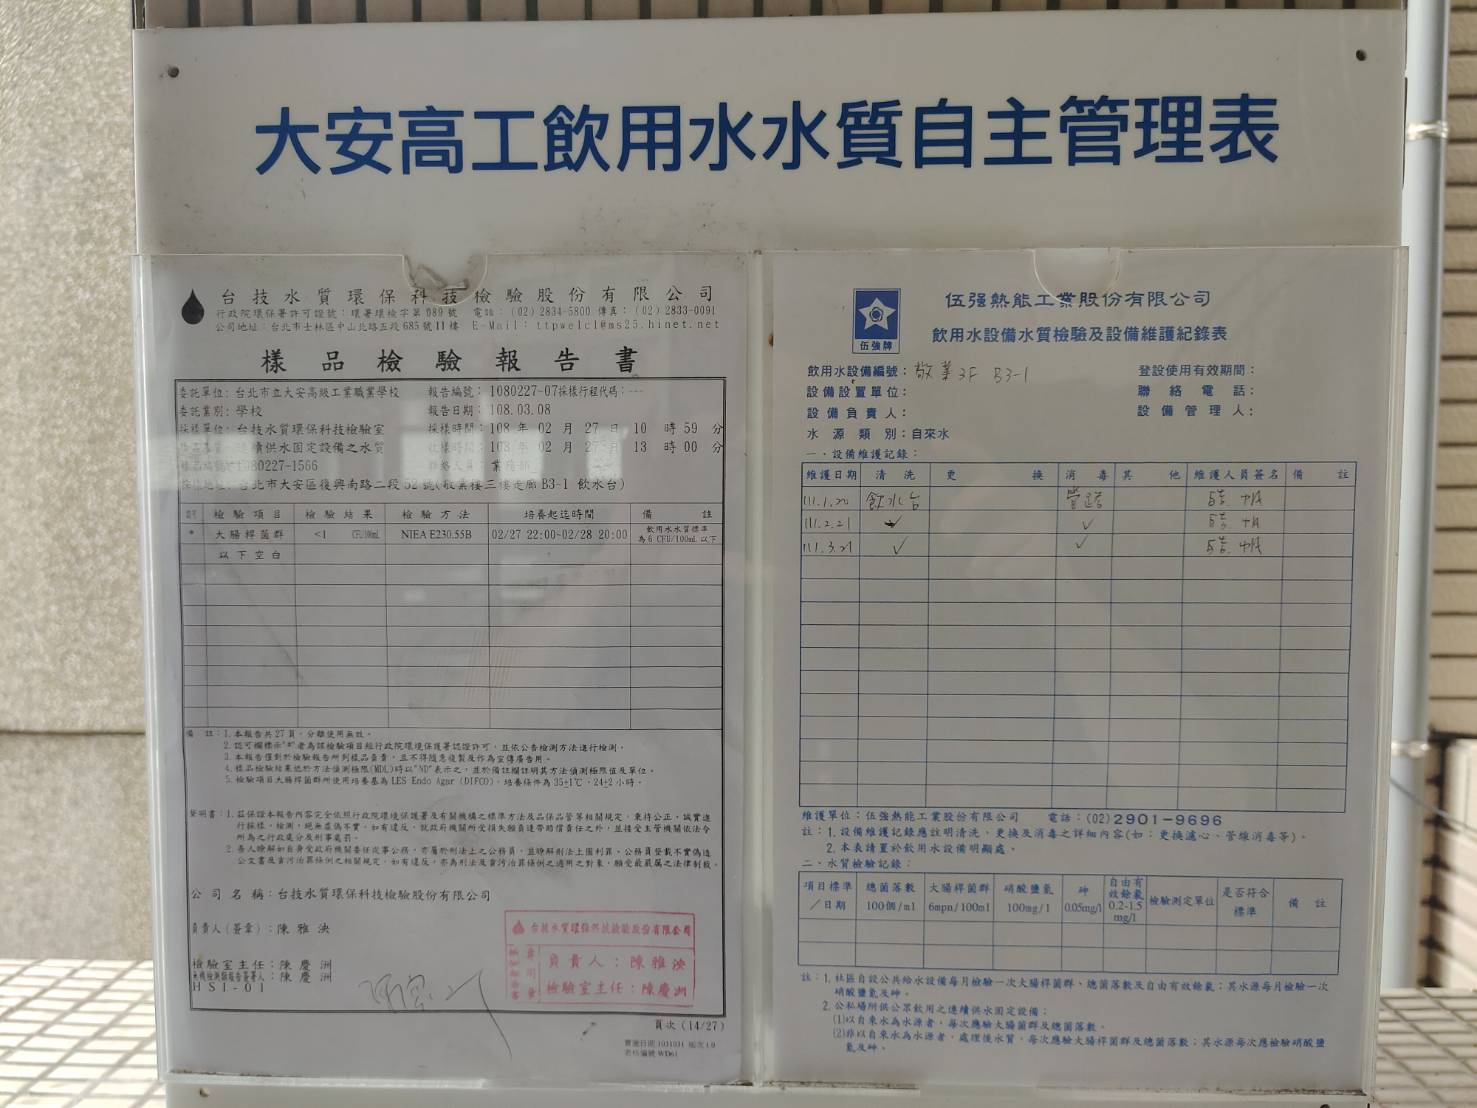 大安高工飲用水水質自主管理表
台技水質環保科技檢驗股份有限公司
行政院環保署許可證號：環署環檢字第089號 電話：(02)2834-5800 傳真：(02)2833-0091
公司地址：台北市士林區中山北路五段685號11樓 E-Mail：ttpwelcl@ms25.hinet.net
樣品檢驗報告書
委託單位：台北市立大安高級工業職業學校 報告編號：1080227-07採樣行程代碼：---
委託業別：學校 報告日期：108.03.08
採樣單位：台技水質環保科技檢驗室 採樣時間：108 年 02 月 27 日 10 時 59 分
連續供水固定設備之水質 收樣時間：108 年 02 月 27 日 13 時 00 分
樣品編號：1080227-1566 聯絡人員：業務部
採樣地址：台北市大安區復興南路二段52號(敬業樓三樓走廊B3-1 飲水台)
檢驗項目 檢驗結果 檢驗方法 培養起迄時間 備註
* 大腸桿菌群 <1 CFU/100mL NIEA E230.55B 02/27 22:00~02/28 20:00 飲用水水質標準
為6 CFU/100mL以下
以下空白
備 註：1.本報告共27頁，分離使用無效。
2.認可欄標示"*"者為該檢驗項目經行政院環境保護署認證許可，且依公告檢測方法進行檢測。
3.本報告僅對於檢驗報告所列樣品負責，且不得隨意複製及作為宣傳廣告用。
4.樣品檢驗結果低於方法偵測極限(MDL)時以"ND"表示之，並於備註欄註明其方法偵測極限值及單位。
5.檢驗項目大腸桿菌群所使用培養基為LES Endo Agar (DIFCO)，培養條件為35±1℃，24±2小時。
聲明書：1.茲保證本報告內容完全依照行政院環境保護署及有關機構之標準方法及品保品管等相關規定，秉持公正、誠實進
行採樣、檢測。絕無虛偽不實，如有違反，就政府機關所受損失願負連帶賠償責任之外，並接受主管機關依法令
所為之行政處分及刑事處罰。
2.吾人瞭解如自身受政府機關委任從事公務，亦屬於刑法上之公務員，並瞭解刑法上圖利罪、公務員登載不實偽造
公文書及貪污治罪條例之相關規定，如有違反，亦為刑法及貪污治罪條例之適用之對象，願受最嚴厲之法律制裁。
公司名稱：台技水質環保科技檢驗股份有限公司
負責人(簽章)：陳雅泱
檢驗室主任：陳慶洲
無機檢測類報告簽署人：陳慶洲
HSI-01
台技水質環保科技檢驗股份有限公司
負責人：陳雅泱
檢驗室主任：陳慶洲
頁次(14/27)
伍強牌
伍强熱能工業股份有限公司
飲用水設備水質檢驗及設備維護紀錄表
飲用水設備編號：敬業3F B3-1 登設使用有效期間：
設備設置單位： 聯絡電話：
設備負責人： 設備管理人：
水源類別：自來水
一、設備維護記錄：
維護日期 清洗 更換 消毒 其他 維護人員簽名 備註
111.1.20 飲水台 管路
111.2.21 ✓ ✓
111.3.21 ✓ ✓
維護單位：伍強熱能工業股份有限公司 電話：(02)2901-9696
註：1.設備維護記錄應註明清洗、更換及消毒之詳細內容(如：更換濾心、管線消毒等)。
2.本表請置於飲用水設備明顯處。
二、水質檢驗記錄：
項目標準／日期 總菌落數 100個/ml 大腸桿菌群 6mpn/100ml 硝酸鹽氮 100mg/l 砷 0.05mg/l 自由有效餘氯 0.2-1.5 mg/l 檢驗測定單位 是否符合標準 備註
註：1.社區自設公共給水設備每月檢驗一次大腸桿菌群、總菌落數及自由有效餘氯；其水源每月檢驗一次
硝酸鹽氮及砷。
2.公私場所供公眾飲用之連續供水固定設備：
(1)以自來水為水源者，每次應驗大腸菌群及總菌落數。
(2)非以自來水為水源者，處理後水質，每次應驗大腸桿菌群及總菌落數；其水源每次應檢驗硝酸鹽
氮及砷。